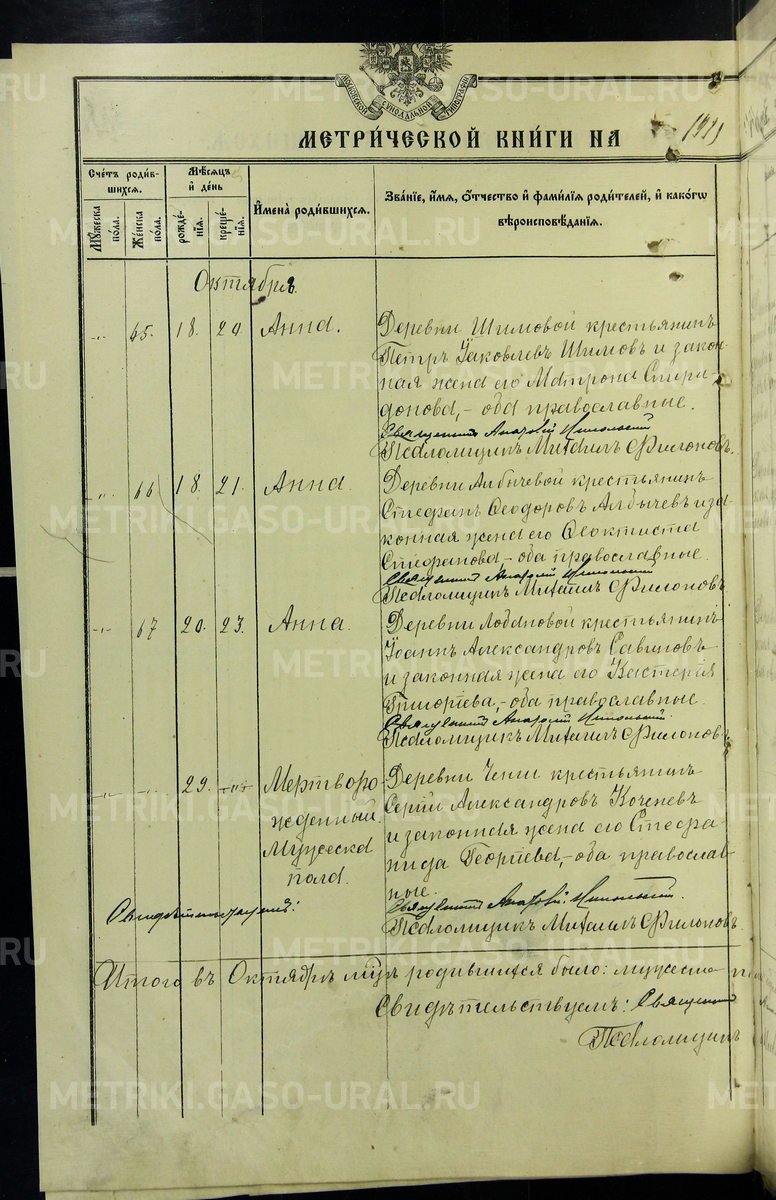 МОСКОВСКОЙ СѴНОДАЛЬНОЙ ТИПОГРАФІИ
МЕТРИ́ЧЕСКОЙ КНИ́ГИ НА
Сче́тъ роди́вшихсѧ.
Мѣ́сѧцъ и҆ де́нь
Мꙋ́жеска по́ла.
Же́нска по́ла.
рожде́нїѧ.
креще́нїѧ.
И҆мена̀ роди́вшихсѧ.
Зва́нїе, и҆́мѧ, ѻ҆́тчество и҆ фами́лїѧ роди́телей, и҆ како́гѡ
вѣроисповѣ́данїѧ.
Октября
65. 18. 20. Анна.
Деревни Шимовой крестьянинъ
Петръ Іаковлевъ Шимовъ и закон-
ная жена его Матрона Спири-
донова, - оба православные.
Священникъ Никольскій
Псаломщикъ Михаилъ Филоновъ.
66 18. 21. Анна.
Деревни Албычевой крестьянинъ
Стефанъ Ѳеодоровъ Албычевъ и за-
конная жена его Ѳеоктиста
Стефанова, - оба православные.
Священникъ Никольскій
Псаломщикъ Михаилъ Филоновъ
67 20. 23. Анна.
Деревни Лобановой крестьянинъ
Іоаннъ Александровъ Савиновъ
и законная жена его
Григоріева, - оба православные.
Священникъ Никольскій.
Псаломщикъ Михаилъ Филоновъ
29. Мертворо-
жденный
Мужеска
пола.
Деревни крестьянинъ
Сергій Александровъ
и законная жена его Стефа-
нида Георгіева, - оба православ-
ные.
Священникъ Никольскій.
Псаломщикъ Михаилъ Филоновъ.
Итого въ Октябрѣ м-цѣ родившихся было: мужеска
Свидѣтельствуемъ: Священникъ
Псаломщикъ
METRIKI.GASO-URAL.RU